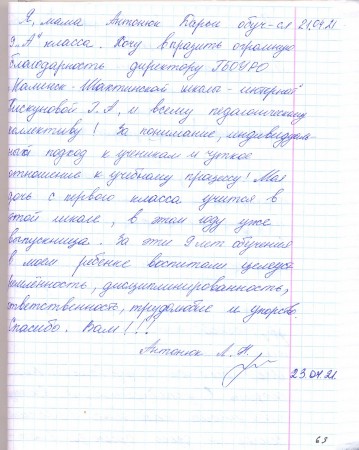 Я, мама Антонюк Дарьи обуч-ся 21.04.21
9 „А" класса. Хочу выразить огромную
благодарность директору ГБОУРО
-Шахтинской школа-интернат"
Пискуновой Г.А, и всему педагогическому
коллективу! За понимание, индивидуаль
ный подход к ученикам и чуткое
отношение к учебному процессу! Моя
дочь с первого класса учится в
этой школе, в этом году уже
выпускница. За эти 9 лет обучения
в моем ребенке воспитали целеуст
ремлённость, дисциплинированность,
ответственность, трудолюбие и упорство.
Спасибо. Вам!!!
Антонюк Л.Н.
23.04.21
63